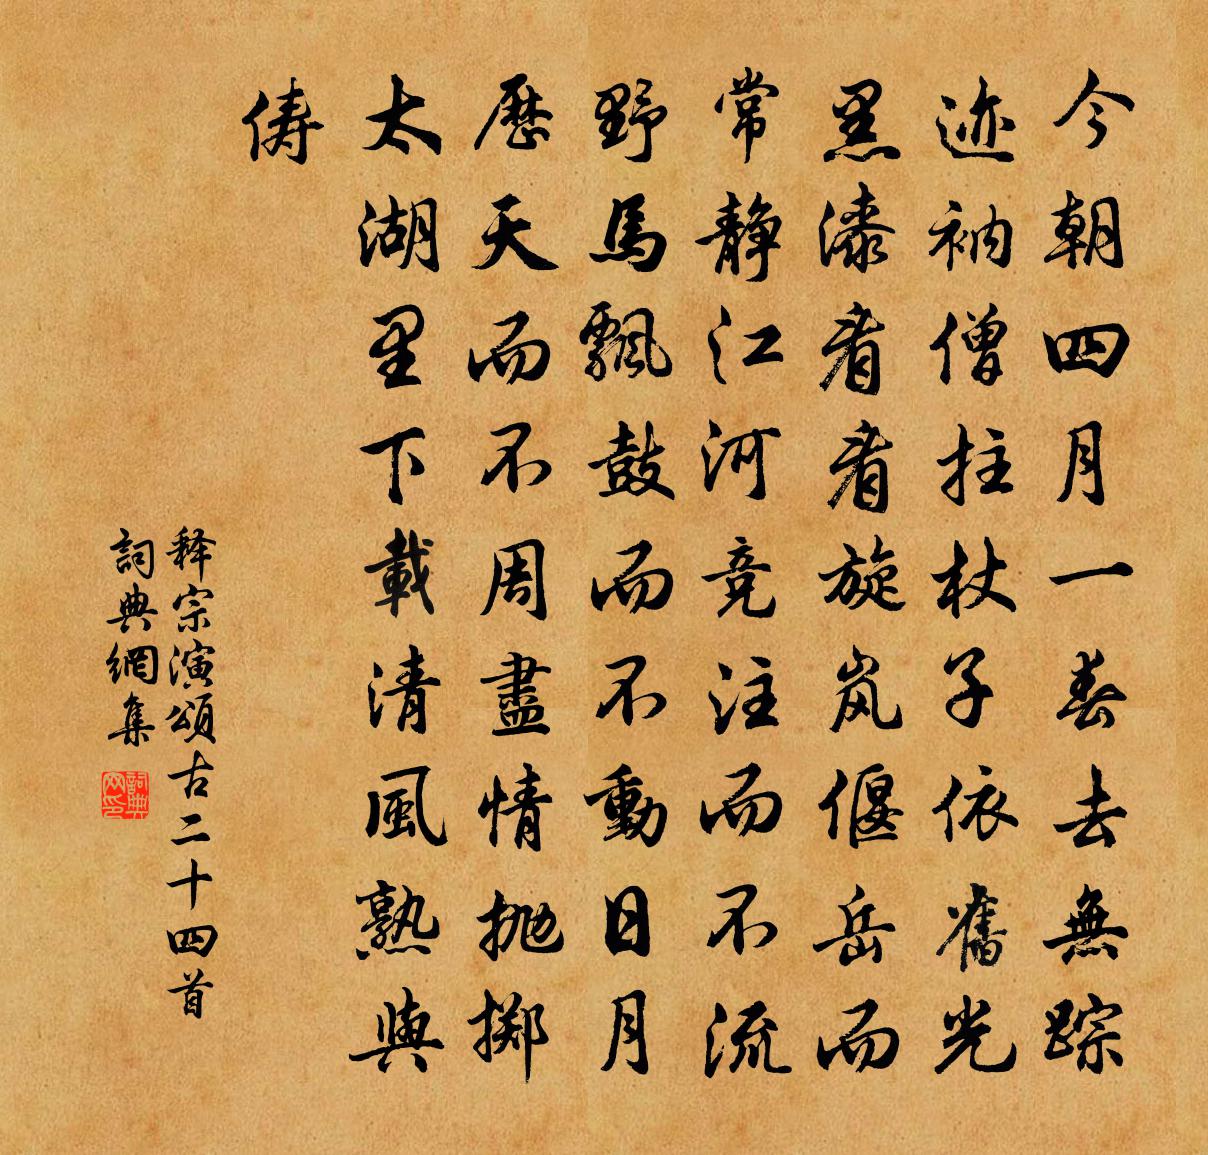 今朝四月一春去無踪
迹衲僧拄杖子依舊光
黑漆看看旋岚偃岳而
常静江河竞注而不流
野馬飄鼓而不動日月
歷天而不周盡情抛掷
太湖里下載清風熟與
俦
释宗演頌古二十四首
詞典網集
詞典网印